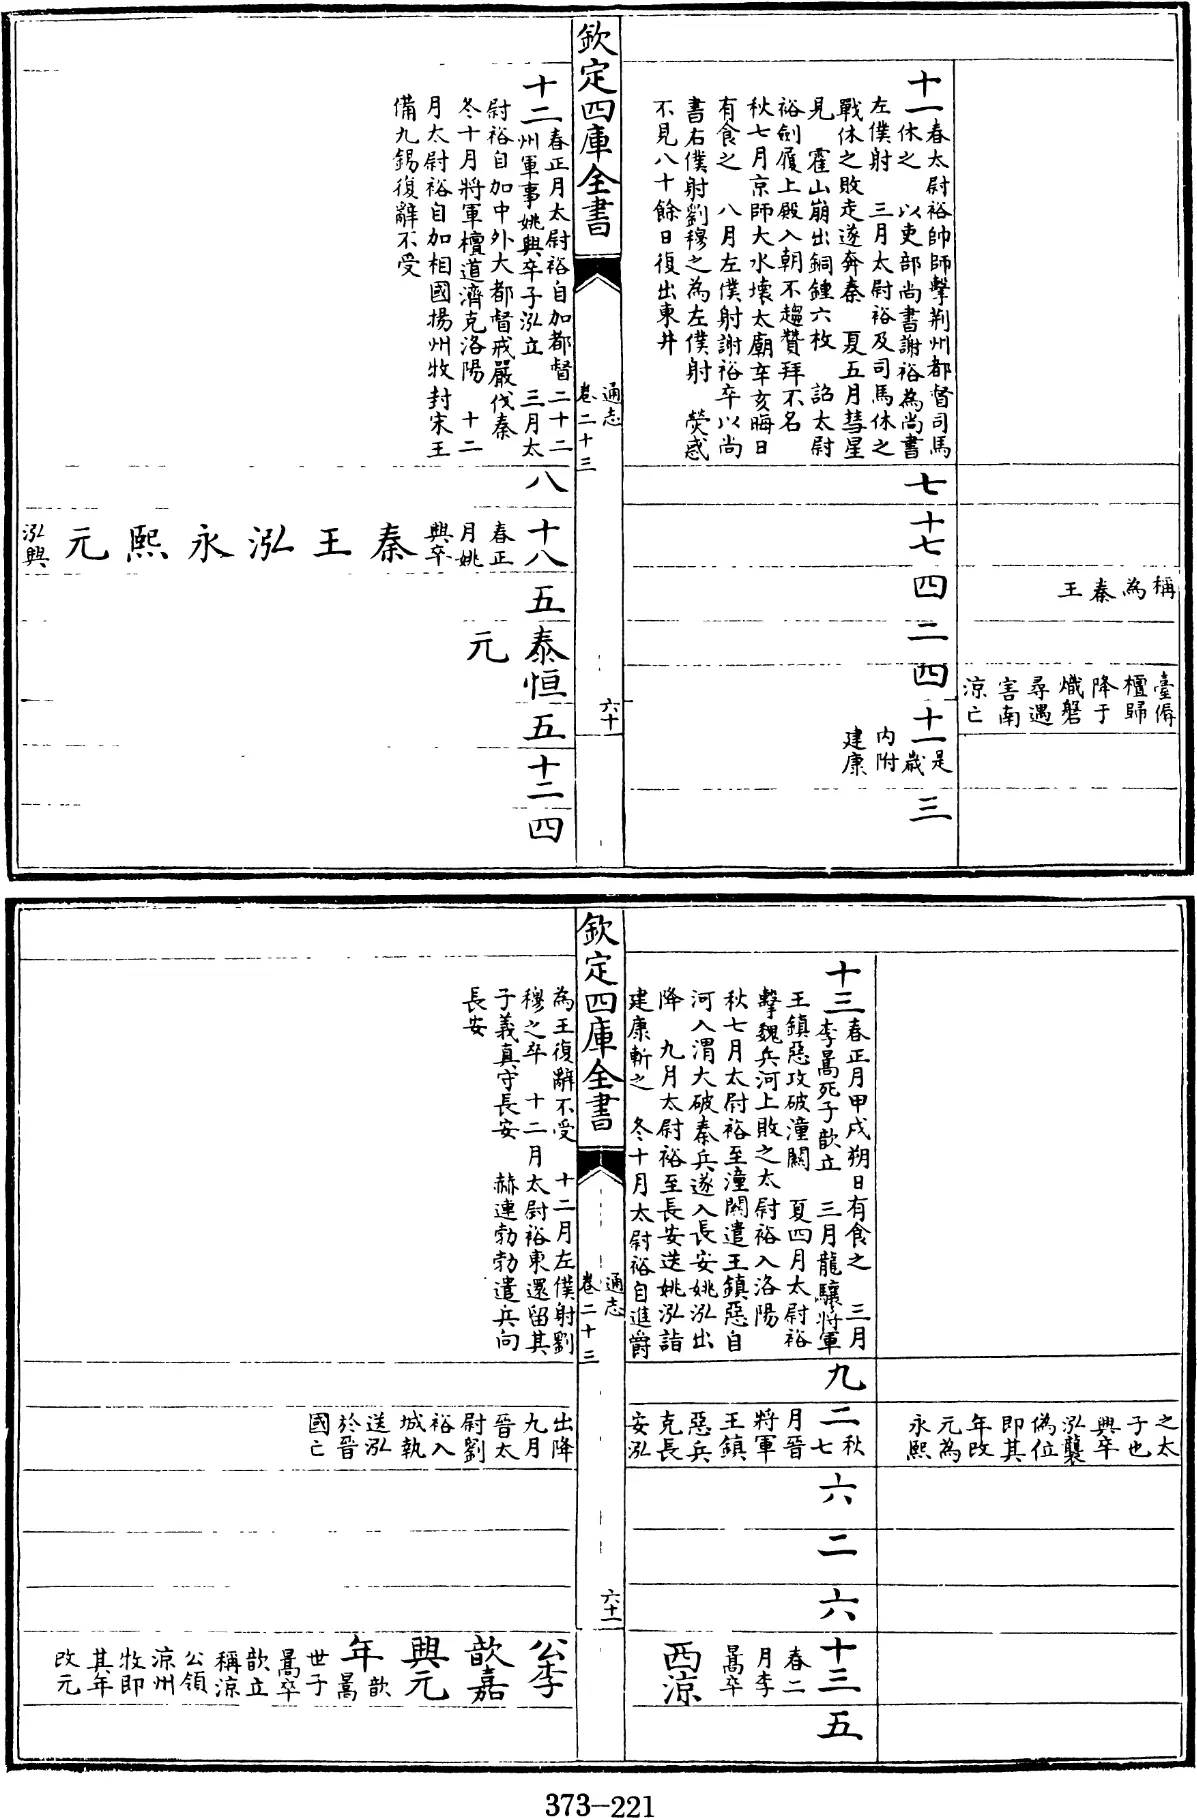 稱為秦王
臺傉
檀歸
降于
熾磐
尋遇
害南
涼亡
十一
春太尉裕帥師擊荆州都督司馬
休之　以吏部尚書謝裕為尚書
左僕射　三月太尉裕及司馬休之
戰休之敗走遂奔秦　夏五月彗星
見　霍山崩出銅鍾六枚　詔太尉
裕劍履上殿入朝不趨贊拜不名
秋七月京師大水壞太廟辛亥晦日
有食之　八月左僕射謝裕卒以尚
書右僕射劉穆之為左僕射　熒惑
不見八十餘日復出東井
七
十七
四
二
四
十一
是歲
內附
建康
三
欽定四庫全書
通志
卷二十三
六十
十二
春正月太尉裕自加都督二十二
州軍事姚興卒子泓立　三月太
尉裕自加中外大都督戒嚴伐秦
冬十月將軍檀道濟克洛陽　十二
月太尉裕自加相國揚州牧封宋王
備九錫復辭不受
八
十八
春正
月姚
興卒
秦王泓永熙元
泓興
五
泰恒
元
五
十二
四
之太
子也
興卒
泓襲
偽位
即其
年改
元為
永熙
十三
春正月甲戌朔日有食之　三月
李暠死子歆立　三月龍驤將軍
王鎮惡攻破潼關　夏四月太尉裕
擊魏兵河上敗之太尉裕入洛陽
秋七月太尉裕至潼關遣王鎮惡自
河入渭大破秦兵遂入長安姚泓出
降　九月太尉裕至長安送姚泓詣
建康斬之　冬十月太尉裕自進爵
九
二
秋七
月晉
將軍
王鎮
惡兵
克長
安泓
六
二
六
十三
春二
月李
暠卒
西涼
五
欽定四庫全書
通志
卷二十三
六十一
為王復辭不受　十二月左僕射劉
穆之卒　十二月太尉裕東還留其
子義真守長安　赫連勃勃遣兵向
長安
出降
九月
晉太
尉劉
裕入
城執
送泓
於晉
國亡
公李
歆嘉
興元
年
歆暠
世子
暠卒
歆立
稱涼
公領
涼州
牧即
其年
改元
373-221